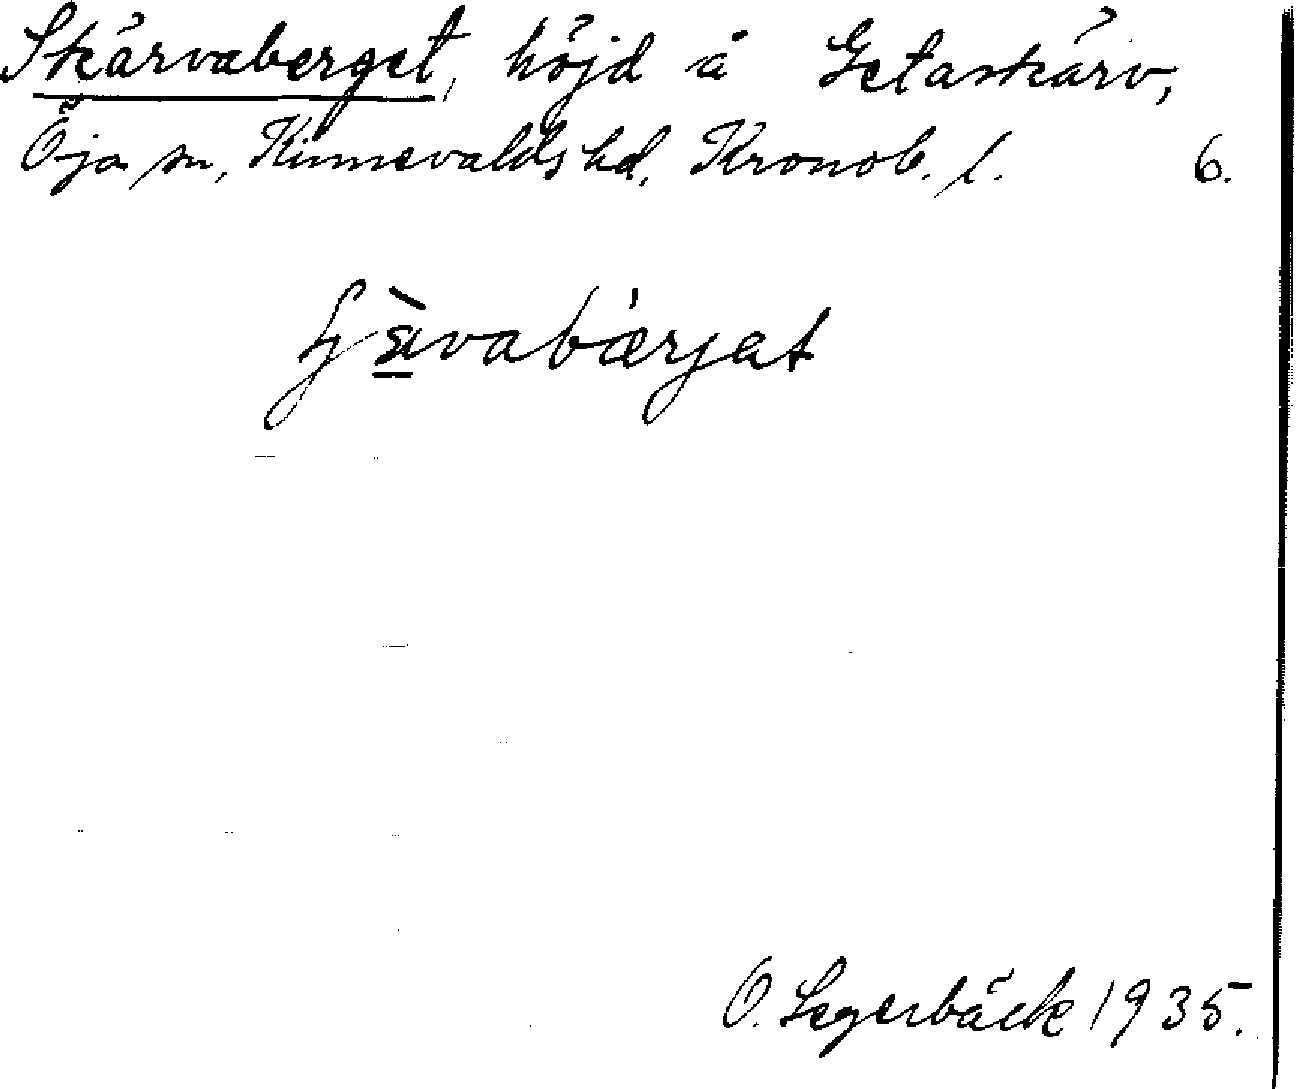 Skärvaberget, höjd å Getaskärv,
Öja sn, Kinnevalds hd, Kronob. l. 6.
bærjat
O. Segerbäck 1935.